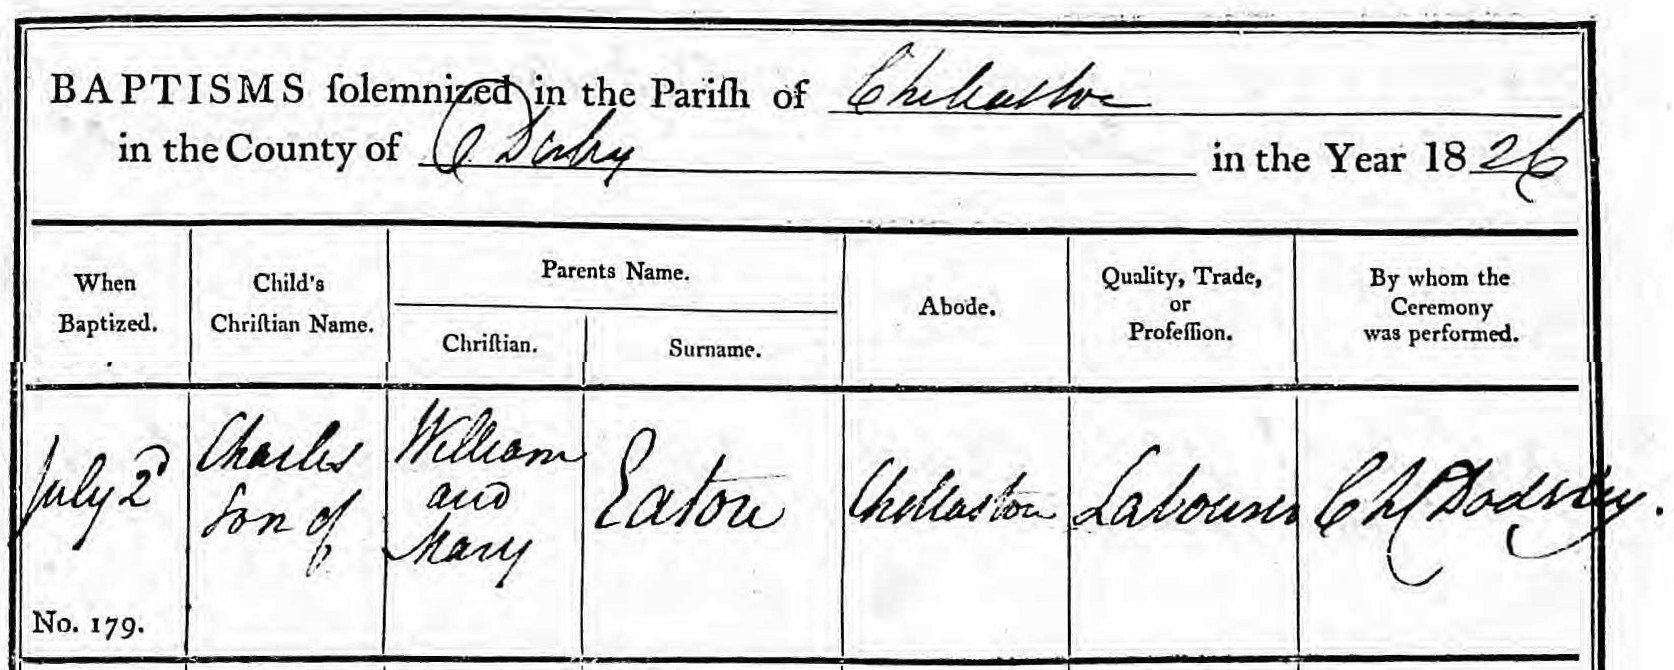 BAPTISMS ſolemnized in the Pariſh of Chellaston
in the County of Derby in the Year 1826
When
Baptized.
Child's
Chriſtian Name.
Parents Name.
Chriſtian.
Surname.
Abode.
Quality, Trade,
or
Profeſſion.
By whom the
Ceremony
was performed.
July 2d
No. 179.
Charles
Son of
William
and
Mary
Eaton
Chellaston
Labourer
Ch